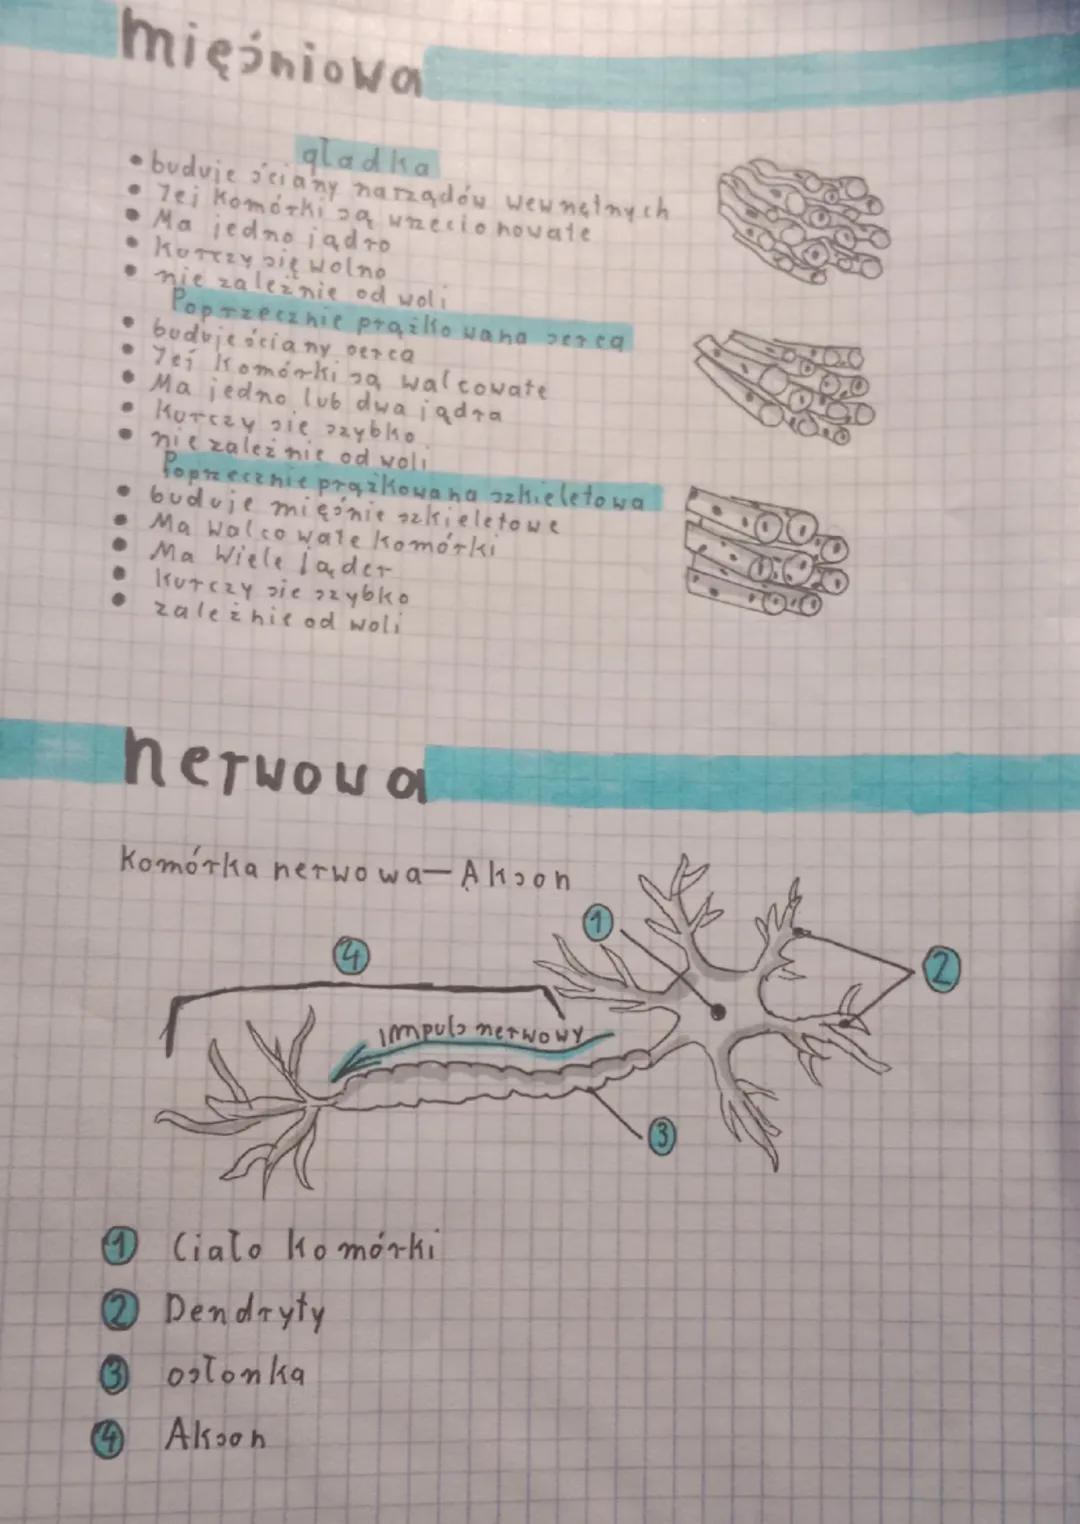 mięśniowa
gładka
• buduje ściany narządów wewnętnych
• Jej komórki są wrzecionowate
• Ma jedno jądro
• Kurczy się wolno
• nie zależnie od woli
Poprzecznie prążkowana serca
• buduje ściany serca
• Jej komórki są walcowate
• Ma jedno lub dwa jądra
• Kurczy sie szybko
• nie zależnie od woli
Poprzecznie prążkowana szkieletowa
• buduje mięśnie szkieletowe
• Ma walcowate komórki
• Ma Wiele jąder
• Kurczy sie szybko
• zależnie od woli
nerwowa
Komórka nerwowa—Akson
1
4
2
impuls nerwowy
3
1 Ciało komórki
2 Dendryty
3 osłonka
4 Akson